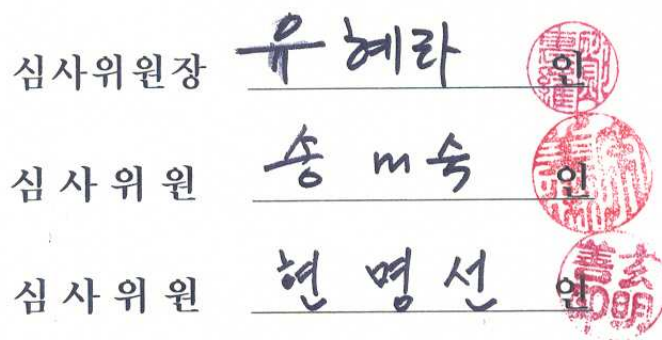 심사위원장 유혜라 인
심사위원 송 m 숙 인
심사위원 현명선 인